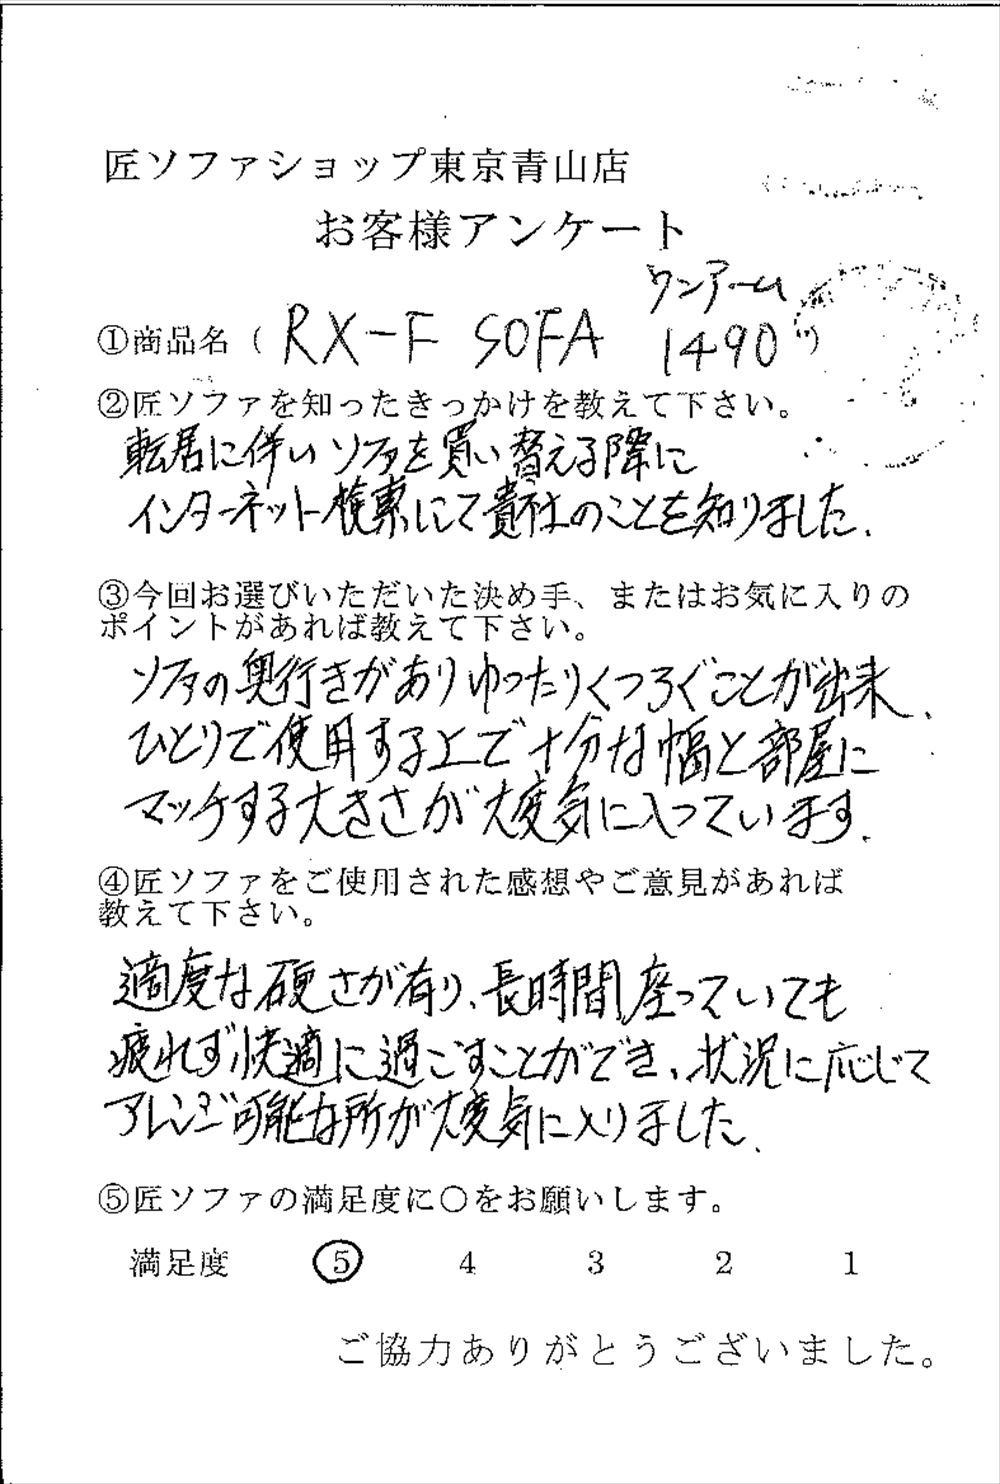 匠ソファショップ東京青山店
お客様アンケート
ワンアーム
①商品名（ RX-F SOFA 1490 ）
②匠ソファを知ったきっかけを教えて下さい。
転居に伴いソファを買い替える際に
インターネット検索にて貴社のことを知りました.
③今回お選びいただいた決め手、またはお気に入りの
ポイントがあれば教えて下さい。
ソファの奥行きがありゆったりくつろぐことが出来、
ひとりで使用する上で十分な幅と部屋に
マッチする大きさが大変気に入っています.
④匠ソファをご使用された感想やご意見があれば
教えて下さい。
適度な硬さが有り、長時間座っていても
疲れず快適に過ごすことができ、状況に応じて
アレンジ可能な所が大変気に入りました.
⑤匠ソファの満足度に○をお願いします。
満足度 5 4 3 2 1
ご協力ありがとうございました。